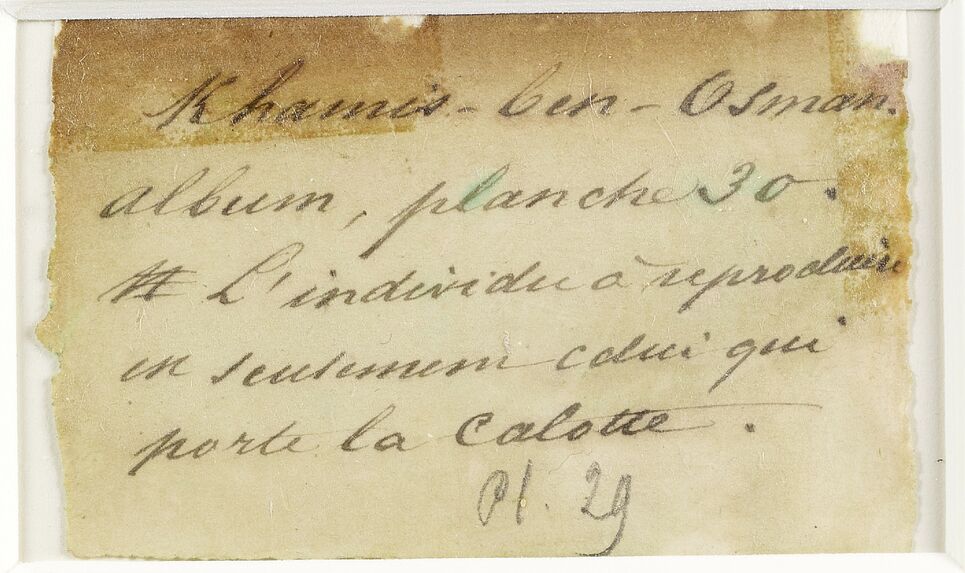 Khamis-ben-Osman.
album, planche 30.
# L'individu à reproduire
est seulement celui qui
porte la calotte.
Pl. 29